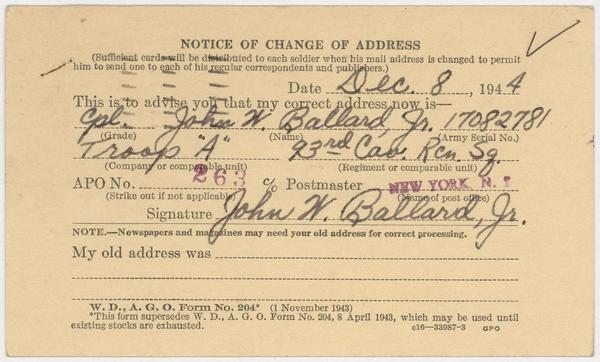 NOTICE OF CHANGE OF ADDRESS
(Sufficient cards will be distributed to each soldier when his mail address is changed to permit
him to send one to each of his regular correspondents and publishers.)
Date Dec. 8, 1944
This is to advise you that my correct address now is—
Cpl. John W. Ballard, Jr. 17082781
(Grade) (Name) (Army Serial No.)
Troop "A" 93rd Cav. Rcn. Sq.
(Company or comparable unit) (Regiment or comparable unit)
APO No. 263 c/o Postmaster NEW YORK, N. Y
(Strike out if not applicable) (Name of post office)
Signature John W. Ballard, Jr.
NOTE.—Newspapers and magazines may need your old address for correct processing.
My old address was
W. D., A. G. O. Form No. 204* (1 November 1943)
*This form supersedes W. D., A. G. O. Form No. 204, 8 April 1943, which may be used until
existing stocks are exhausted. c16—33987-3 GPO